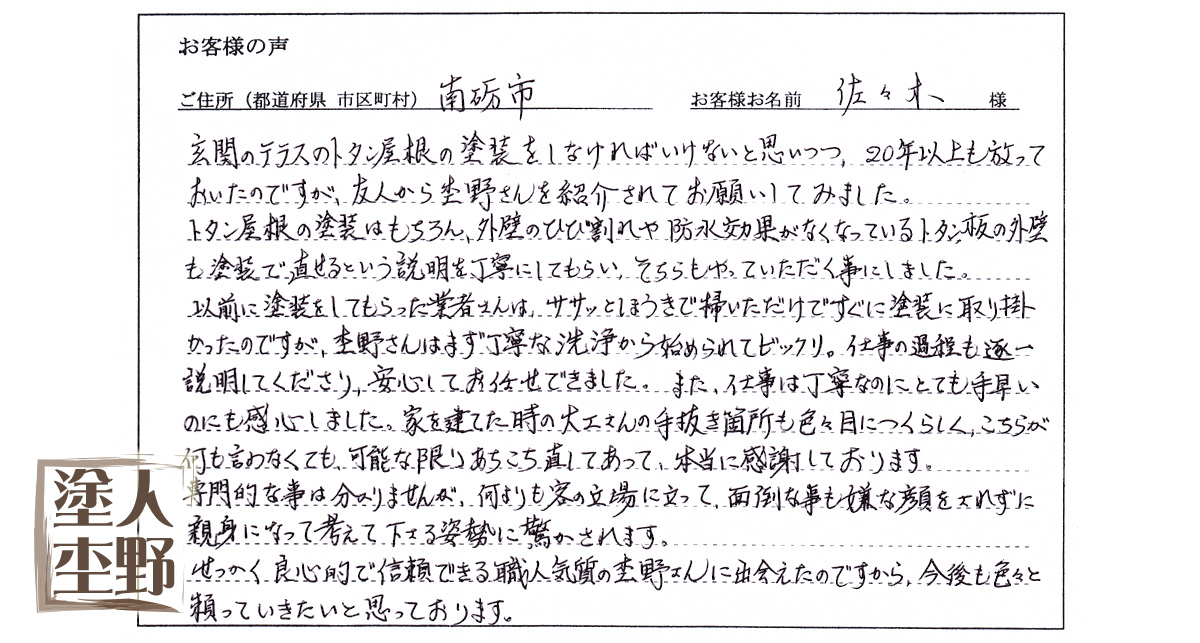 お客様の声
ご住所（都道府県 市区町村） 南砺市 お客様お名前 佐々木 様
玄関のテラスのトタン屋根の塗装をしなければいけないと思いつつ、20年以上も放って
おいたのですが、友人から杢野さんを紹介されてお願いしてみました。
トタン屋根の塗装はもちろん、外壁のひび割れや防水効果がなくなっているトタン板の外壁
も塗装で直せるという説明を丁寧にしてもらい、そちらもやっていただく事にしました。
以前に塗装をしてもらった業者さんは、ササッとほうきで掃いただけですぐに塗装に取り掛
かったのですが、杢野さんはまず丁寧な洗浄から始められてビックリ。仕事の過程も逐一
説明してくださり、安心してお任せできました。また、仕事は丁寧なのにとても手早い
のにも感心しました。家を建てた時の大工さんの手抜き箇所も色々目につくらしく、こちらが
何も言わなくても、可能な限りあちこち直してあって、本当に感謝しております。
専門的な事は分かりませんが、何よりも客の立場に立って、面倒な事も嫌な顔をされずに
親身になって考えて下さる姿勢に驚かされます。
せっかく良心的で信頼できる職人気質の杢野さんに出会えたのですから、今後も色々と
頼っていきたいと思っております。
塗人
杢野